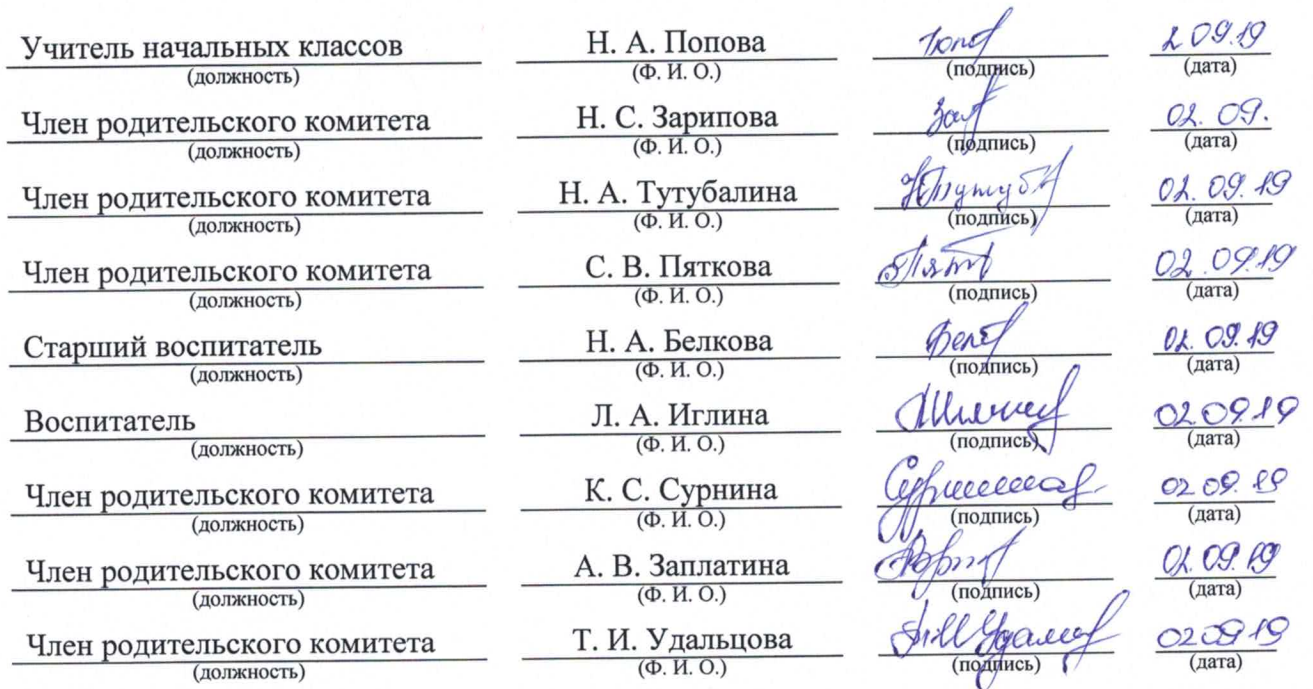 Учитель начальных классов Н. А. Попова 2 09.19
(должность) (Ф. И. О.) (подпись) (дата)
Член родительского комитета Н. С. Зарипова 02. 09.
(должность) (Ф. И. О.) (подпись) (дата)
Член родительского комитета Н. А. Тутубалина 02. 09. 19
(должность) (Ф. И. О.) (подпись) (дата)
Член родительского комитета С. В. Пяткова 02. 09.19
(должность) (Ф. И. О.) (подпись) (дата)
Старший воспитатель Н. А. Белкова 02. 09. 19
(должность) (Ф. И. О.) (подпись) (дата)
Воспитатель Л. А. Иглина 02.09.19
(должность) (Ф. И. О.) (подпись) (дата)
Член родительского комитета К. С. Сурнина 02 09. 19
(должность) (Ф. И. О.) (подпись) (дата)
Член родительского комитета А. В. Заплатина 02. 09. 19
(должность) (Ф. И. О.) (подпись) (дата)
Член родительского комитета Т. И. Удальцова 02 09 19
(должность) (Ф. И. О.) (подпись) (дата)